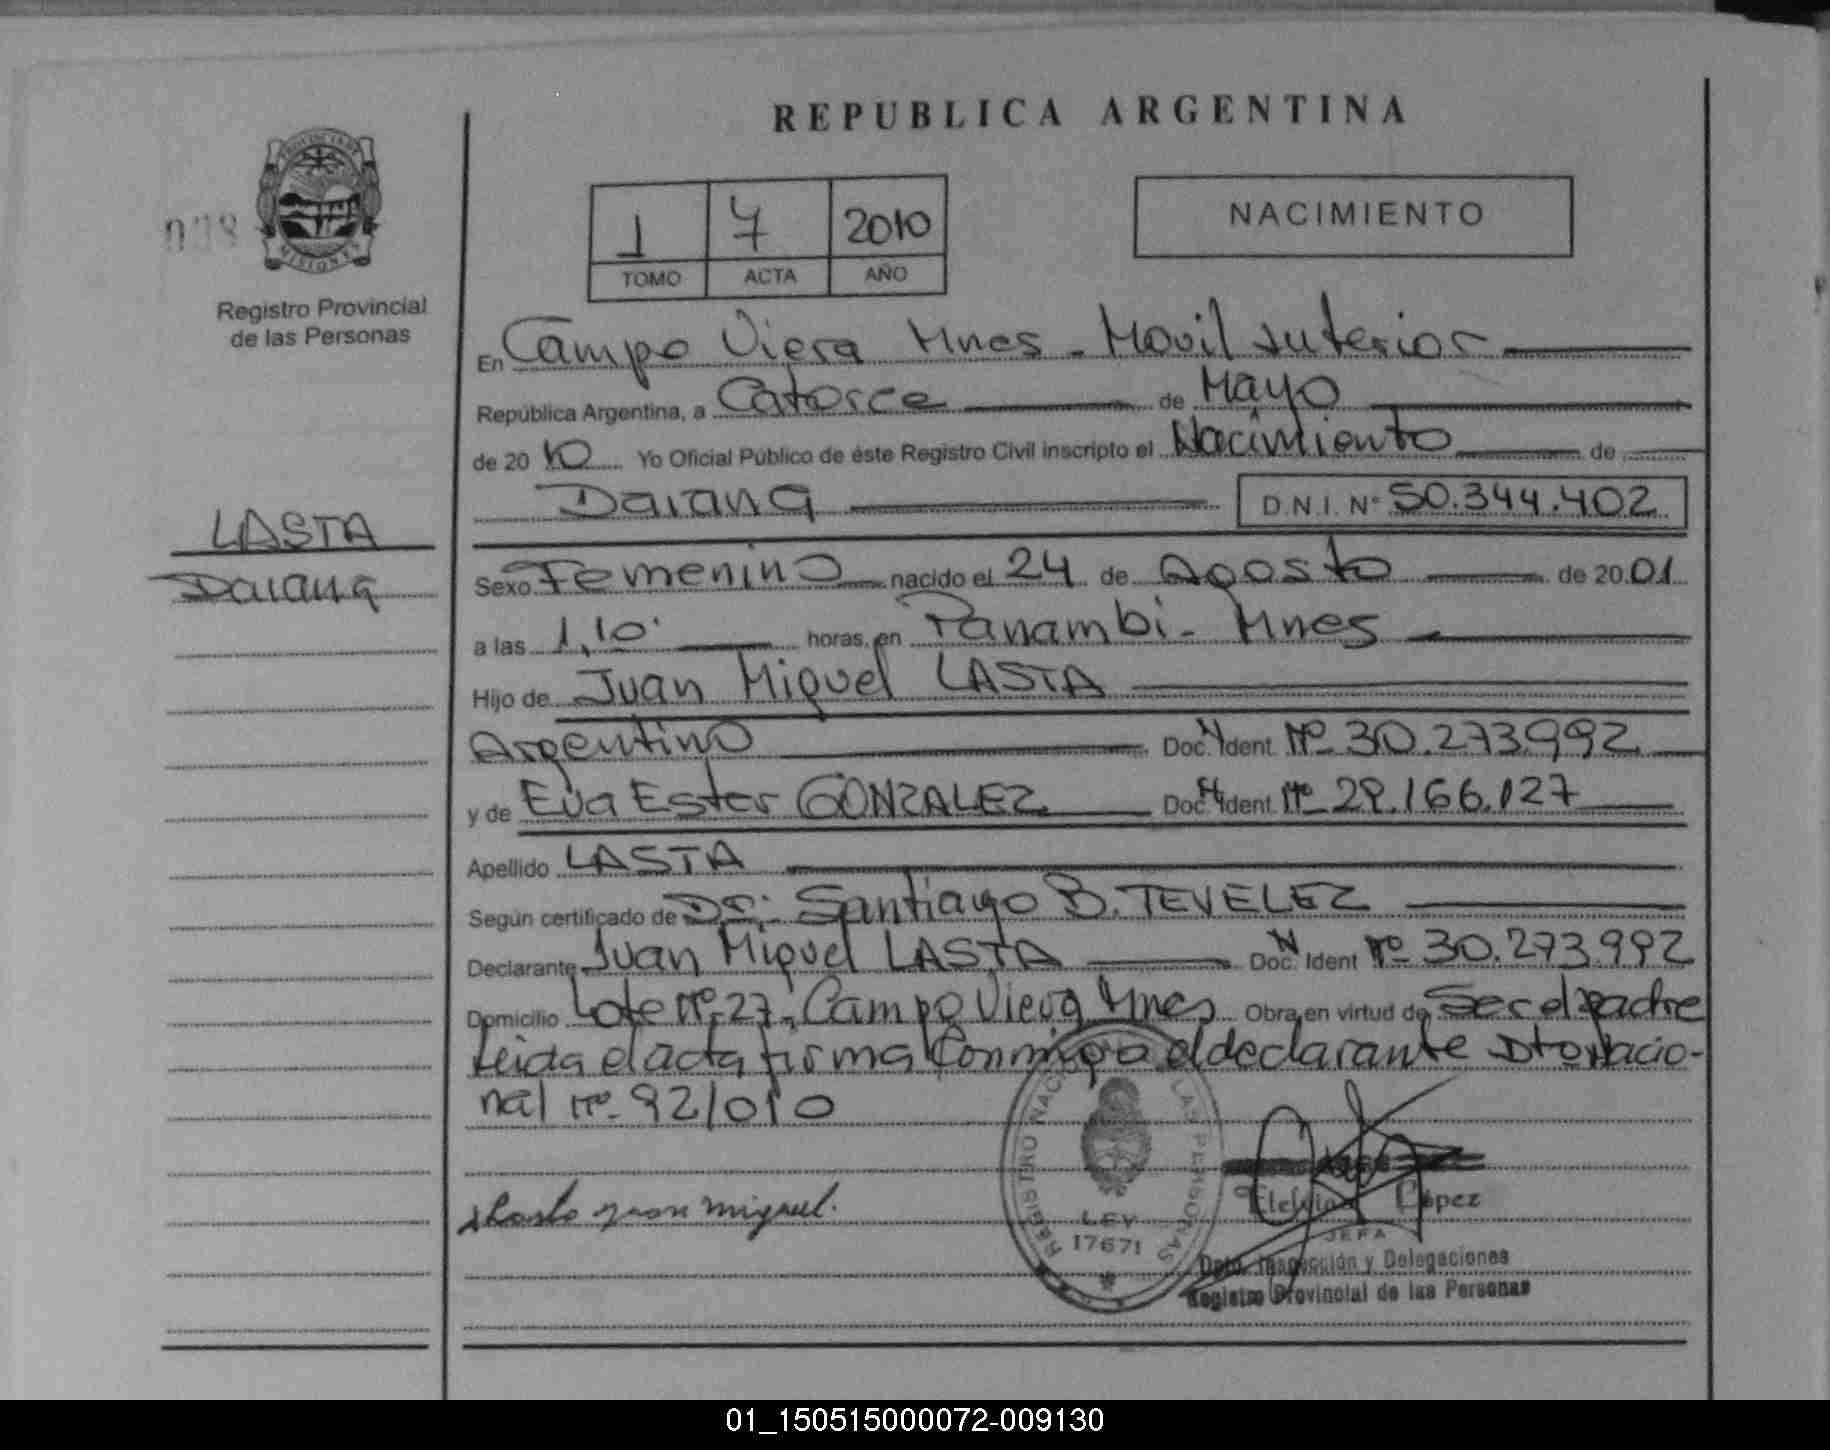 REPUBLICA ARGENTINA
PROVINCIA DE
MISIONES
Registro Provincial
de las Personas
1 7 2010
TOMO ACTA AÑO
NACIMIENTO
En Campo Viera Mnes - Movil Interior
República Argentina, a Catorce de Mayo
de 20 10 Yo Oficial Público de éste Registro Civil inscripto el Nacimiento de
Daiana D.N.I. Nº 50.344.402
LASTA
Daiana
Sexo Femenino nacido el 24 de Agosto de 20 01
a las 1,10 horas, en Panambi - Mnes
Hijo de Juan Miguel LASTA
Argentino Doc. N Ident. Nº 30.273.992
y de Eva Ester GONZALEZ Doc. N Ident. Nº 29.166.127
Apellido LASTA
Según certificado de Dr: Santiago B. TEVELEZ
Declarante Juan Miguel LASTA Doc. N Ident Nº 30.273.992
Domicilio Lote Nº 27, Campo Viera Mnes Obra en virtud de Ser el padre
Leida el acta firma Conmigo el declarante Dto Nacio-
nal Nº 92/010
Lasta Juan miguel.
REGISTRO NACIONAL DE LAS PERSONAS
LEY
17671
López
JEFA
Dpto. Inspección y Delegaciones
Registro Provincial de las Personas
01_150515000072-009130